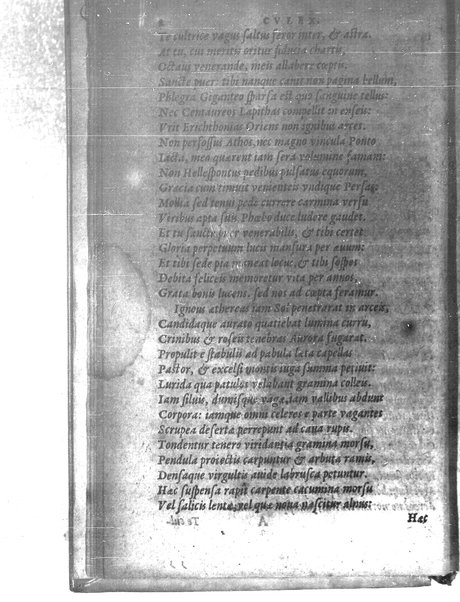 CVLEX.
Te cultrice vagus saltus feror inter, & astra.
Et tu, cui meritis oritur fiducia chartis,
Octaui venerande, meis allabere cœptis.
Sancte puer: tibi nanque canit non pagina bellum,
Phlegra Giganteo sparsa est quo sanguine tellus:
Nec Centaureos Lapithas compellit in enseis:
Vrit Erichthonias Oriens non ignibus arces.
Non perfossus Athos, nec magno vincula Ponto
Iacta, meo quærent iam sera volumine famam:
Non Hellespontus pedibus pulsatus equorum,
Græcia cum timuit venienteis vndique Persas:
Mollia sed tenui pede currere carmina versu
Viribus apta suis Phœbo duce ludere gaudet.
Et tu sancte puer venerabilis, & tibi certet
Gloria perpetuum lucis mansura per æuum:
Et tibi sede pia maneat locus, & tibi sospes
Debita feliceis memoretur vita per annos,
Grata bonis lucens. sed nos ad cœpta feramur.
Igneus æthereas iam Sol penetrarat in arceis,
Candidaque aurato quatiebat lumina curru,
Crinibus & roseis tenebras Aurora fugarat.
Propulit e stabulis ad pabula læta capellas
Pastor, & excelsi montis iuga summa petiuit:
Lurida qua patulos velabant gramina colleis.
Iam siluis, dumisque vagæ, iam vallibus abdunt
Corpora: iamque omni celeres e parte vagantes
Scrupea deserta perrepunt ad caua rupis.
Tondentur tenero viridantia gramina morsu,
Pendula proiectis carpuntur & arbuta ramis,
Densaque virgultis auide labrusca petuntur.
Hæc suspensa rapit carpente cacumina morsu
Vel salicis lentæ, vel quæ noua nascitur alnus:
Hæc